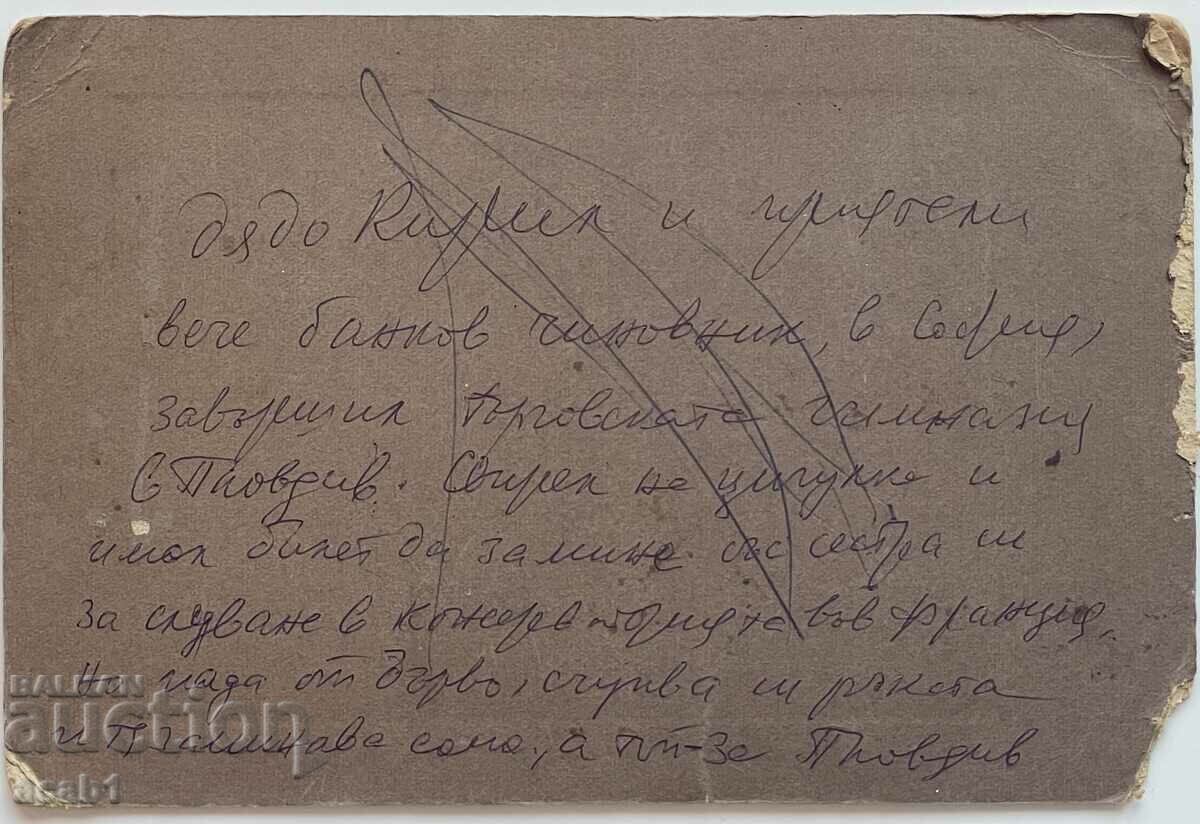 дядо Кирил и приятели
вече банков чиновник, в София,
завършил търговската гимназия
в Пловдив. Свирел на цигулка и
имал билет да замине със сестра си
за следване в консерваторията във Франция,
но пада от дърво, счупва си ръката
и тя заминава сама, а той - за Пловдив
BALKAN
auction
acab1